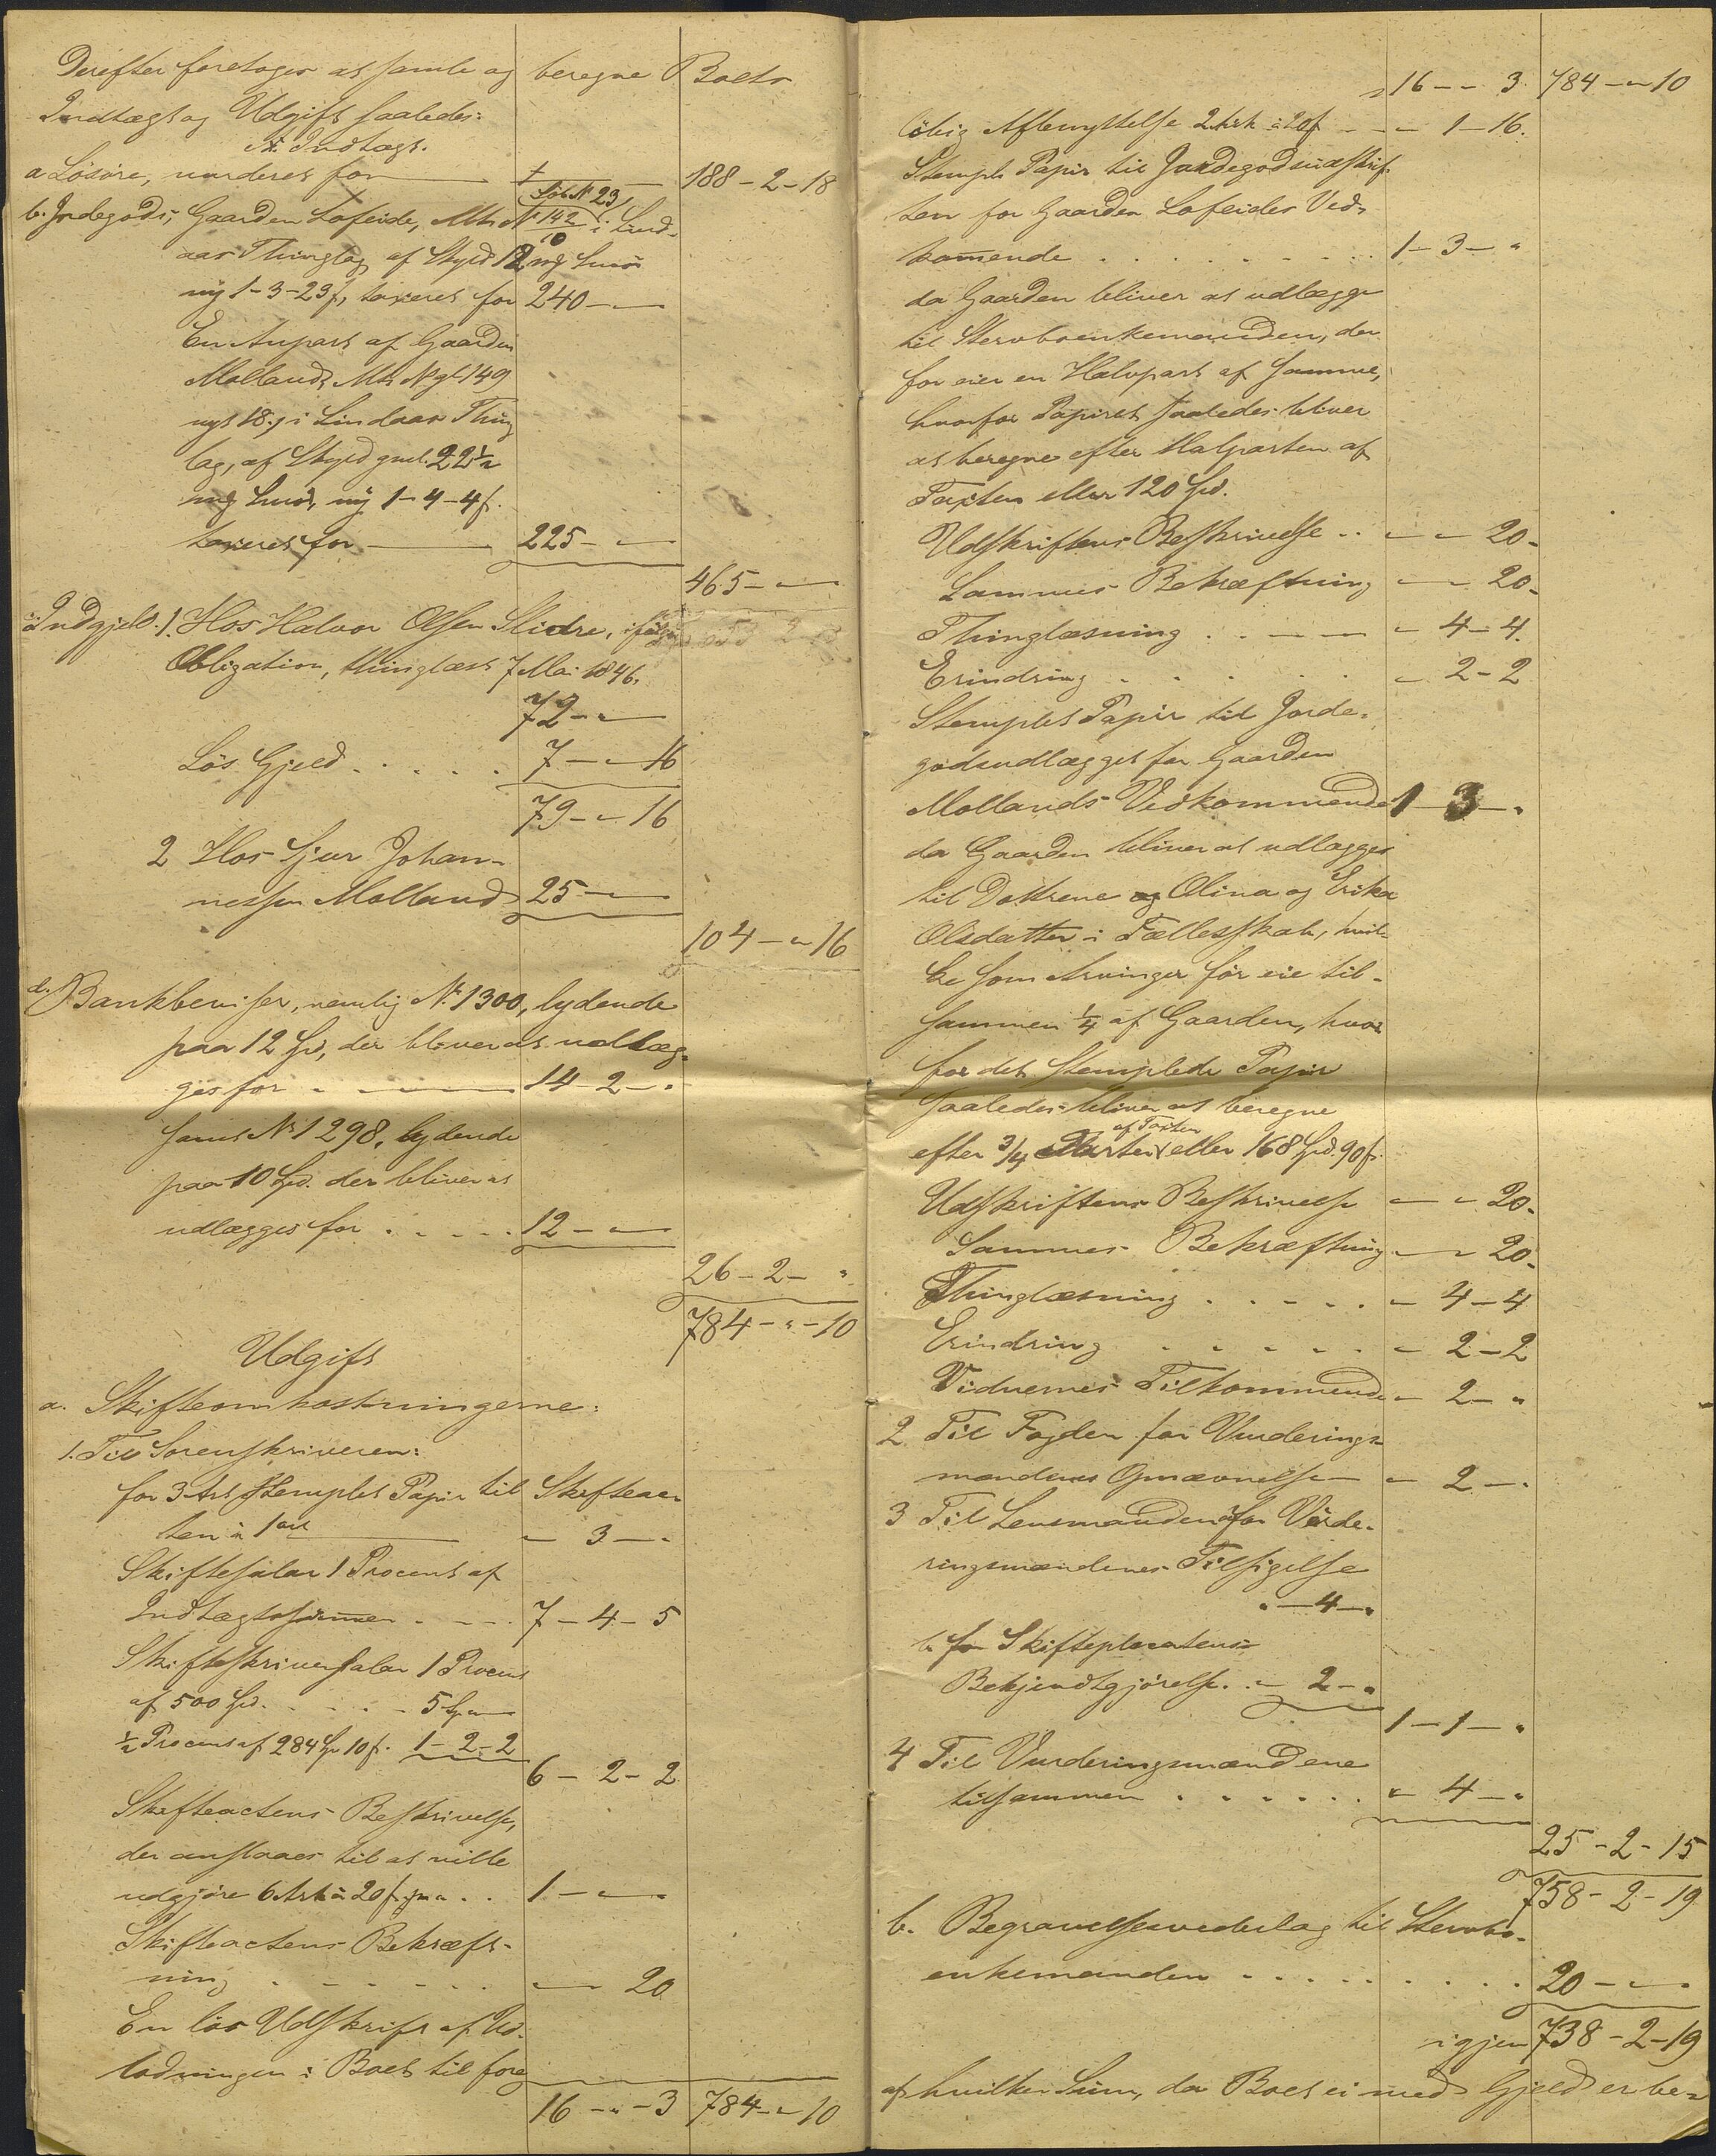 Derefter foretoges at samle og beregne Boets
Indtægt og Udgift saaledes:
A. Indtægt.
a Løsøre, vurderet for 188-2-18
b. Jordegods; Gaarden Lofeide, Mtr N 142 Løb N 23, i Lind-
10
aas Thinglag af Skyld 12 mg Smør
ny 1-3-23 f, taxeret for 240-"-"
En Anpart af Gaarden
Molland, Mtr N gl. 149
nyt 18, i Lindaas Thing
lag, af Skyld gml. 22½
mg Smør, ny 1-4-4 f.
taxeret for 225-"-"
465-"-"
Indgjeld. 1. Hos Halvor Olsen Slidre, ifølge
Obligation, thinglæst 7 Mai 1846,
72-"-"
Løs Gjeld 7-"-16
79-"-16
2 Hos Sjur Johan-
nessen Molland 25-"-"
104-"-16
d. Bankbeviser, nemlig N. 1300, lydende
paa 12 Spd, der bliver at udlæg-
ges for 14-2-"
samt N. 1298, lydende
paa 10 Spd. der bliver at
udlægges for 12-"-"
26-2-"
784-"-10
Udgift
a. Skifteomkostningerne:
1. Til Sorenskriveren:
for 3 Ark stemplet Papir til Skifteac-
ten à 1 ort "-3-"
Skiftesalær 1 Procent af
Indtægtssummen 7-4-5
Skifteskriversalær 1 Procent
af 500 Spd. 5 Sp "-"
½ Procent af 284 Sp 10 f. 1-2-2
6-2-2
Skifteactens Beskrivelse,
der anslaaes til at ville
udgjøre 6 Ark à 20 f 1-"-"
Skifteactens Bekræft-
ning "-"-20
En løs Udskrift af Ud-
lodningen i Boet til foreg
16-"-3 784-"-10
16-"-3 784-"-10
løbig Afbenyttelse 2 Ark à 20 f "-1-16.
Stemplet Papir til Jordegodsudskrif-
ten for Gaarden Lofeides Ved-
kommende 1-3-"
da Gaarden bliver at udlægge
til Stervboenkemanden, der
før eier en Halvpart af samme,
hvorfor Papiret saaledes bliver
at beregne efter Halvparten af
Taxten eller 120 Spd.
Udskriftens Beskrivelse "-"-20-
Sammes Bekræftning "-"-20-
Thinglæsning "-4-4.
Erindring "-2-2
Stemplet Papir til Jorde-
godsudlægget for Gaarden
Mollands Vedkommende 1-3-"
da Gaarden bliver at udlægges
til Døttrene og Olina og Erika
Olsdatter i Fællesskab, hvil-
ke som Arvinger før eie til-
sammen ¼ af Gaarden, hvor
for det stemplede Papir
saaledes bliver at beregne
af Taxten
efter 3/4 Parter eller 168 Spd. 90 f.
Udskriftens Beskrivelse "-"-20-
Sammes Bekræftning "-"-20-
Thinglæsning "-4-4
Erindring "-2-2
Vidnernes Tilkommende "-2-"
2 Til Fogden for Vurderings-
mændenes Opnævnelse "-2-"
3 Til Lensmanden a for Vurde-
ringsmændenes Tilsigelse
"-4-"
b. for Skifteplacatens
Bekjendtgjørelse "-2-"
1-1-"
4 Til Vurderingsmændene
tilsammen "-4-"
25-2-15
758-2-19
b. Begravelsesvederlag til Stervbo-
enkemanden 20-"-"
igjen 738-2-19
af hvilken Sum, da Boet ei med Gjeld er be-